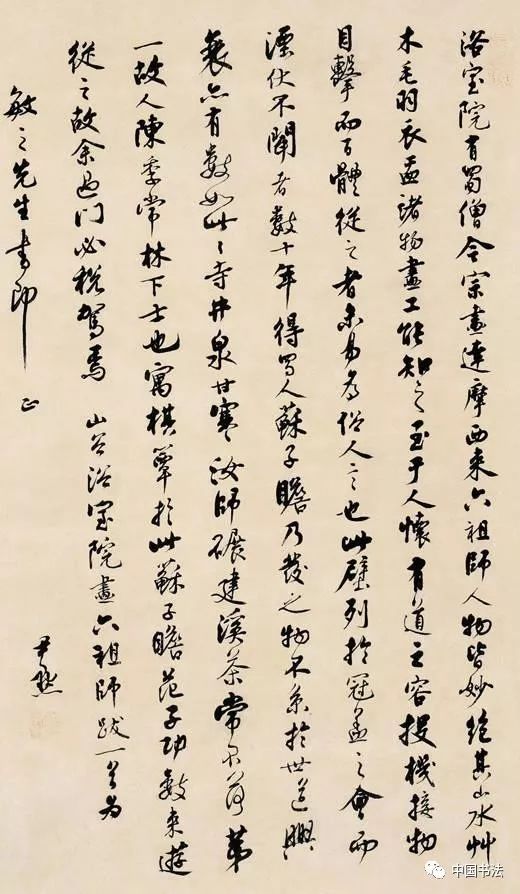 浴室院有蜀僧令宗畫達摩西来六祖師人物皆妙絕其山水艸
木毛羽衣盂諸物畫工能知之至于人懷有道之容投機接物
目擊而百體從之者未易為俗人言也此壁列於冠蓋之會而
湮伏不聞者數十年得蜀人蘇子瞻乃發之物不系於世道興
衰亦有數如此〻寺井泉甘寒汝師碾建溪茶常不落第
一故人陳季常林下士也寓棋簟於此蘇子瞻范子功數来遊
從之故余過門必稅駕焉 山谷浴室院畫六祖師跋一首為
敏之先生書即正
尹默
中国书法